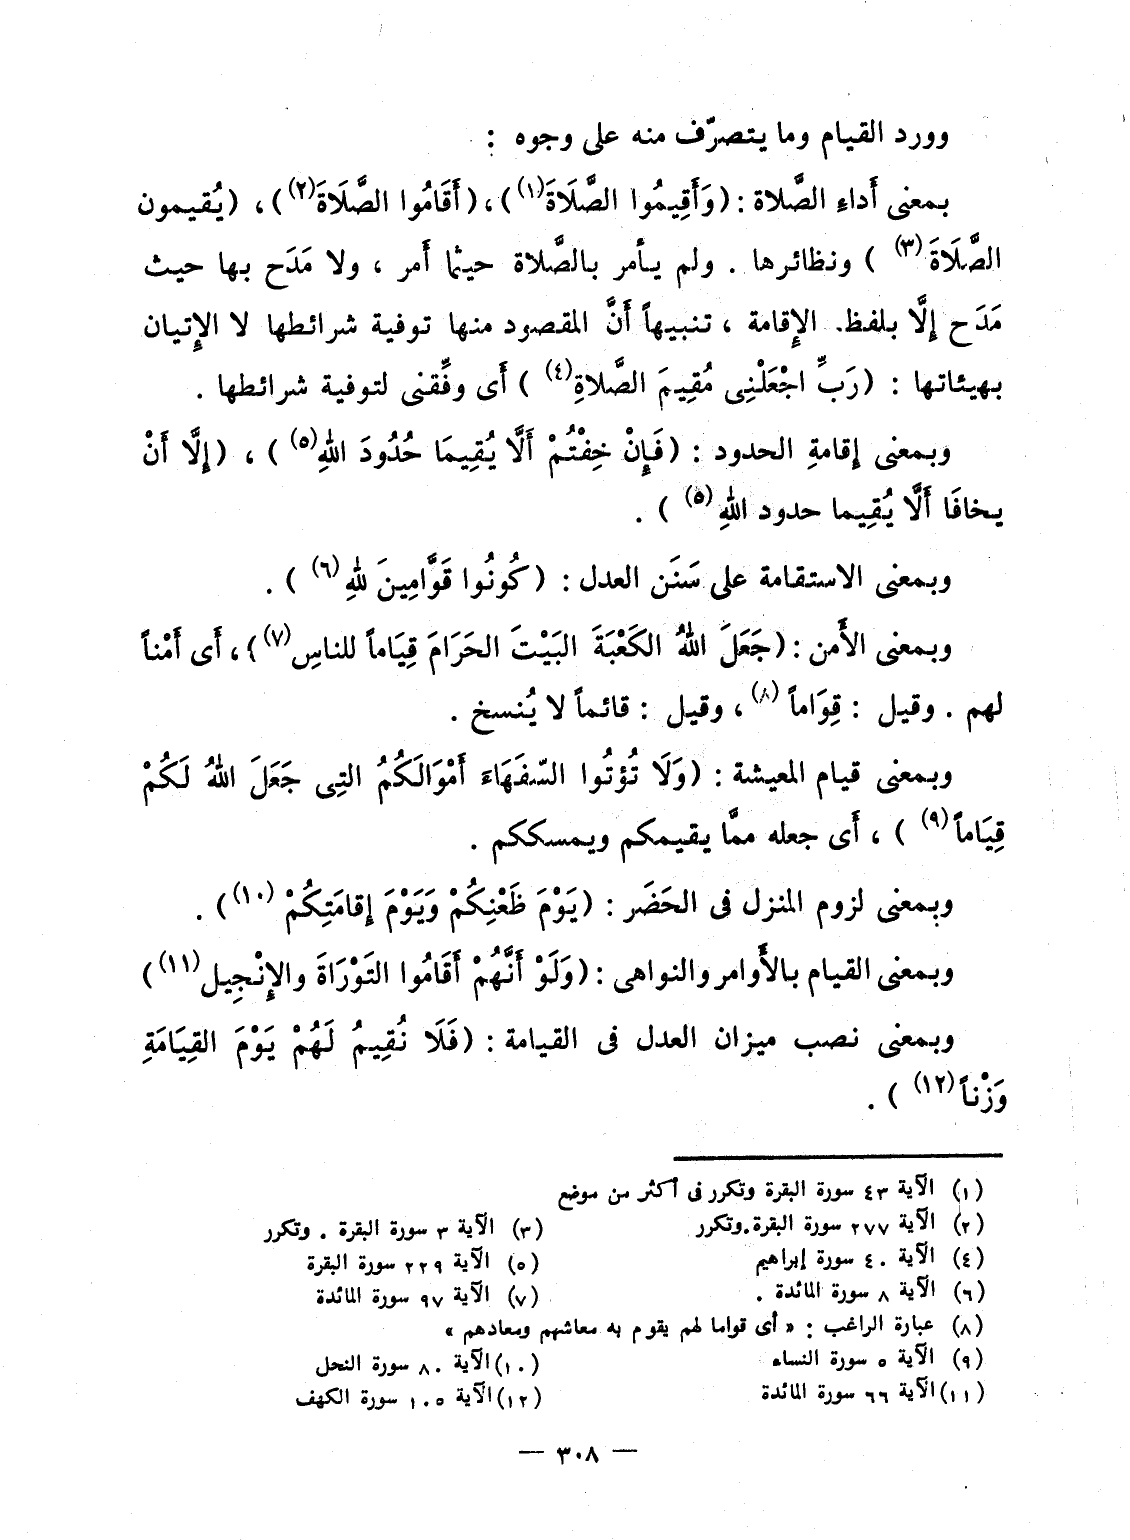 وورد القيام وما يتصرّف منه على وجوه :
بمعنى أَداءِ الصَّلاة : (وَأَقِيمُوا الصَّلَاةَ(١))، (أَقَامُوا الصَّلَاةَ(٢))، (يُقيمون
الصَّلَاةَ(٣) ) ونظائرها . ولم يأمر بالصَّلاة حيثما أَمر ، ولا مَدَح بها حيث
مَدَح إِلَّا بلفظ. الإِقامة ، تنبيهاً أَنَّ المقصود منها توفية شرائطها لا الإِتيان
بهيئاتها : (رَبِّ اجْعَلْنِى مُقِيمَ الصَّلاةِ(٤) ) أَى وفِّقنى لتوفية شرائطها .
وبمعنى إِقامةِ الحدود : (فَإِنْ خِفْتُمْ أَلَّا يُقِيمَا حُدُودَ اللهِ(٥) ) ، (إِلَّا أَنْ
يخافَا أَلَّا يُقِيما حدود اللهِ(٥) ) .
وبمعنى الاستقامة على سَنَن العدل : (كُونُوا قَوَّامِينَ لِلهِ(٦) ) .
وبمعنى الأَمن : (جَعَلَ اللهُ الكَعْبَةَ البَيْتَ الحَرَامَ قِيَاماً للناسِ(٧))، أَى أَمْناً
لهم . وقيل : قِوَاماً(٨)، وقيل : قائماً لا يُنسخ .
وبمعنى قيام المعيشة : (وَلَا تُؤتُوا السّفَهَاءَ أَمْوَالَكُمُ التِى جَعَلَ اللهُ لَكُمْ
قِيَاماً(٩) ) ، أَى جعله ممَّا يقيمكم ويمسككم .
وبمعنى لزوم المنزل فى الحَضَر : (يَوْمَ ظَعْنِكُمْ وَيَوْمَ إِقامَتِكُمْ(١٠)) .
وبمعنى القيام بالأَوامر والنواهى : (وَلَوْ أَنَّهُمْ أَقَامُوا التَوْرَاةَ والإِنْجِيل(١١))
وبمعنى نصب ميزان العدل فى القيامة : (فَلَا نُقِيمُ لَهُمْ يَوْمَ القِيَامَةِ
وَزْناً(١٢) ) .
(١) الآية ٤٣ سورة البقرة وتكرر فى أكثر من موضع
(٢) الآية ٢٧٧ سورة البقرة.وتكرر (٣) الآية ٣ سورة البقرة . وتكرر
(٤) الآية ٤٠ سورة إبراهيم (٥) الآية ٢٢٩ سورة البقرة
(٦) الآية ٨ سورة المائدة . (٧) الآية ٩٧ سورة المائدة
(٨) عبارة الراغب : « أى قواما لهم يقوم به معاشهم ومعادهم »
(٩) الآية ٥ سورة النساء (١٠) الآية ٨٠ سورة النحل
(١١) الآية ٦٦ سورة المائدة (١٢) الآية ١٠٥ سورة الكهف
— ٣٠٨ —